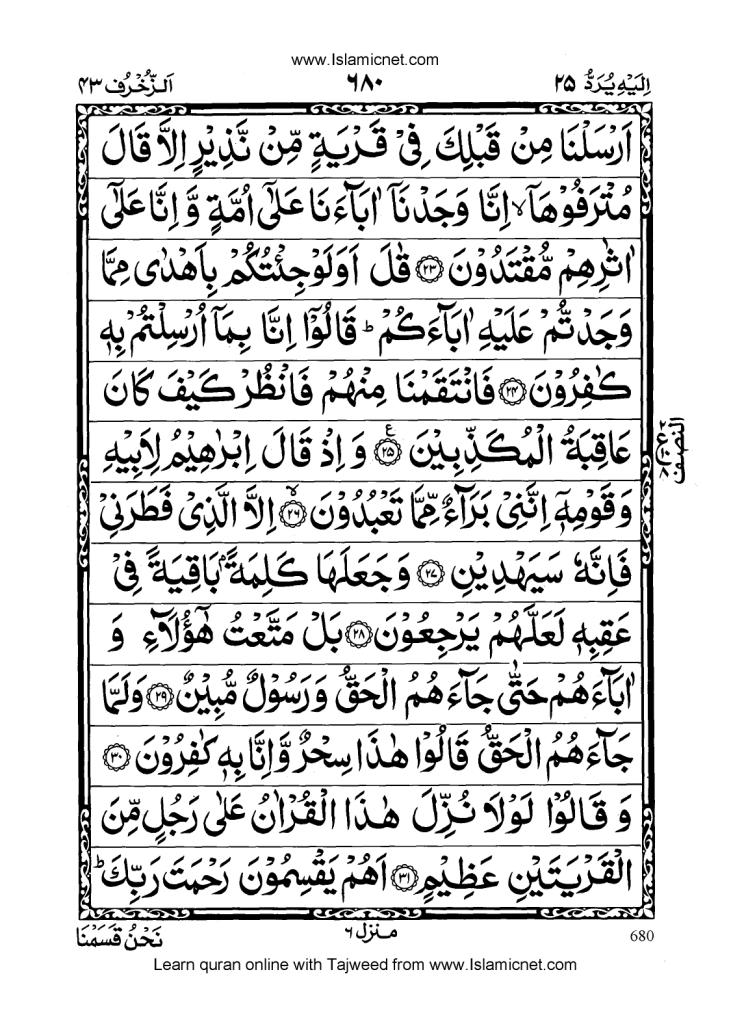 www.Islamicnet.com
اِلَیْهِ یُرَدُّ ۲۵
۶۸۰
اَلزُّخْرُف ۴۳
اَرْسَلْنَا مِنْ قَبْلِكَ فِیْ قَرْیَةٍ مِّنْ نَّذِیْرٍ اِلَّا قَالَ
مُتْرَفُوْهَاۤ ۙ اِنَّا وَجَدْنَاۤ اٰبَآءَنَا عَلٰۤی اُمَّةٍ وَّ اِنَّا عَلٰۤی
اٰثٰرِهِمْ مُّقْتَدُوْنَ ۝۲۳ قٰلَ اَوَلَوْ جِئْتُكُمْ بِاَهْدٰی مِمَّا
وَجَدْتُّمْ عَلَیْهِ اٰبَآءَكُمْ ؕ قَالُوْۤا اِنَّا بِمَاۤ اُرْسِلْتُمْ بِهٖ
كٰفِرُوْنَ ۝۲۴ فَانْتَقَمْنَا مِنْهُمْ فَانْظُرْ كَیْفَ كَانَ
عَاقِبَةُ الْمُكَذِّبِیْنَ ۝۲۵ ع وَ اِذْ قَالَ اِبْرٰهِیْمُ لِاَبِیْهِ
وَ قَوْمِهٖۤ اِنَّنِیْ بَرَآءٌ مِّمَّا تَعْبُدُوْنَ ۝۲۶ ۙ اِلَّا الَّذِیْ فَطَرَنِیْ
فَاِنَّهٗ سَیَهْدِیْنِ ۝۲۷ وَ جَعَلَهَا كَلِمَةًۢ بَاقِیَةً فِیْ
عَقِبِهٖ لَعَلَّهُمْ یَرْجِعُوْنَ ۝۲۸ بَلْ مَتَّعْتُ هٰۤؤُلَآءِ وَ
اٰبَآءَهُمْ حَتّٰی جَآءَهُمُ الْحَقُّ وَ رَسُوْلٌ مُّبِیْنٌ ۝۲۹ وَ لَمَّا
جَآءَهُمُ الْحَقُّ قَالُوْا هٰذَا سِحْرٌ وَّ اِنَّا بِهٖ كٰفِرُوْنَ ۝۳۰
وَ قَالُوْا لَوْلَا نُزِّلَ هٰذَا الْقُرْاٰنُ عَلٰی رَجُلٍ مِّنَ
الْقَرْیَتَیْنِ عَظِیْمٍ ۝۳۱ اَهُمْ یَقْسِمُوْنَ رَحْمَتَ رَبِّكَ ؕ
النصف
منزل ۶
نَحْنُ قَسَمْنَا
680
Learn quran online with Tajweed from www.Islamicnet.com